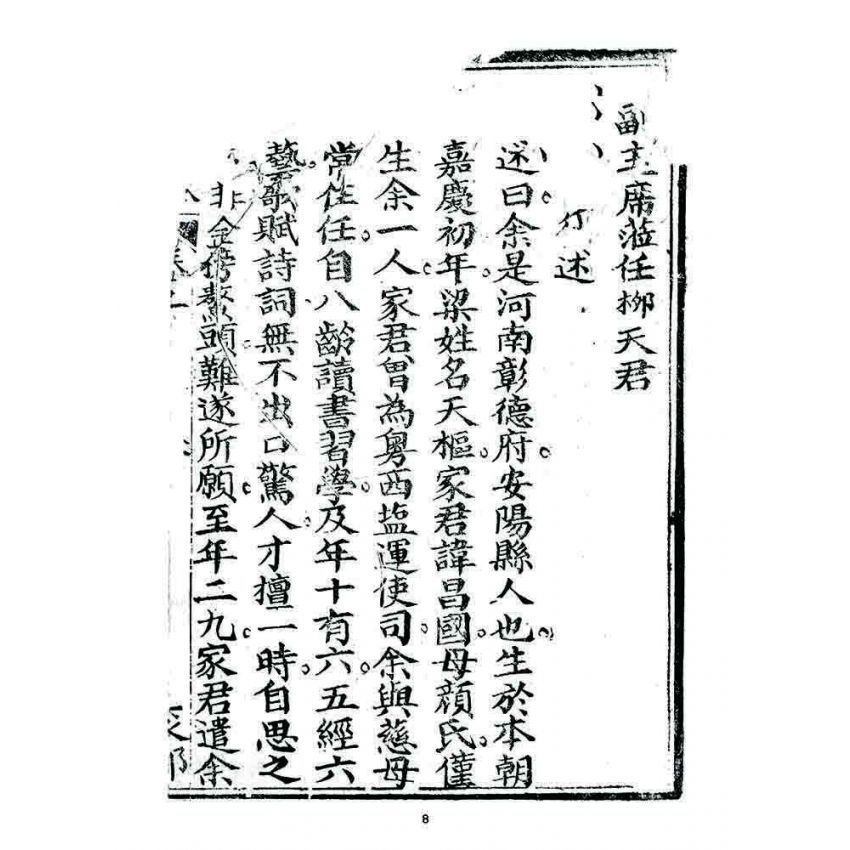 副主席蒞任柳天君
行述
述曰余是河南彰德府。安陽縣人也。生於本朝
嘉慶初年。梁姓名天樞。家君諱昌國。母顏氏。僅
生余一人。家君曾為粵西塩運使司。余與慈母
常住任。自八齡讀書習學。及年十有六。五經六
藝。歌賦詩詞。無不出口驚人。才擅一時。自思之
非金榜鰲頭。難遂所願。至年二九。家君遣余
卷之
8